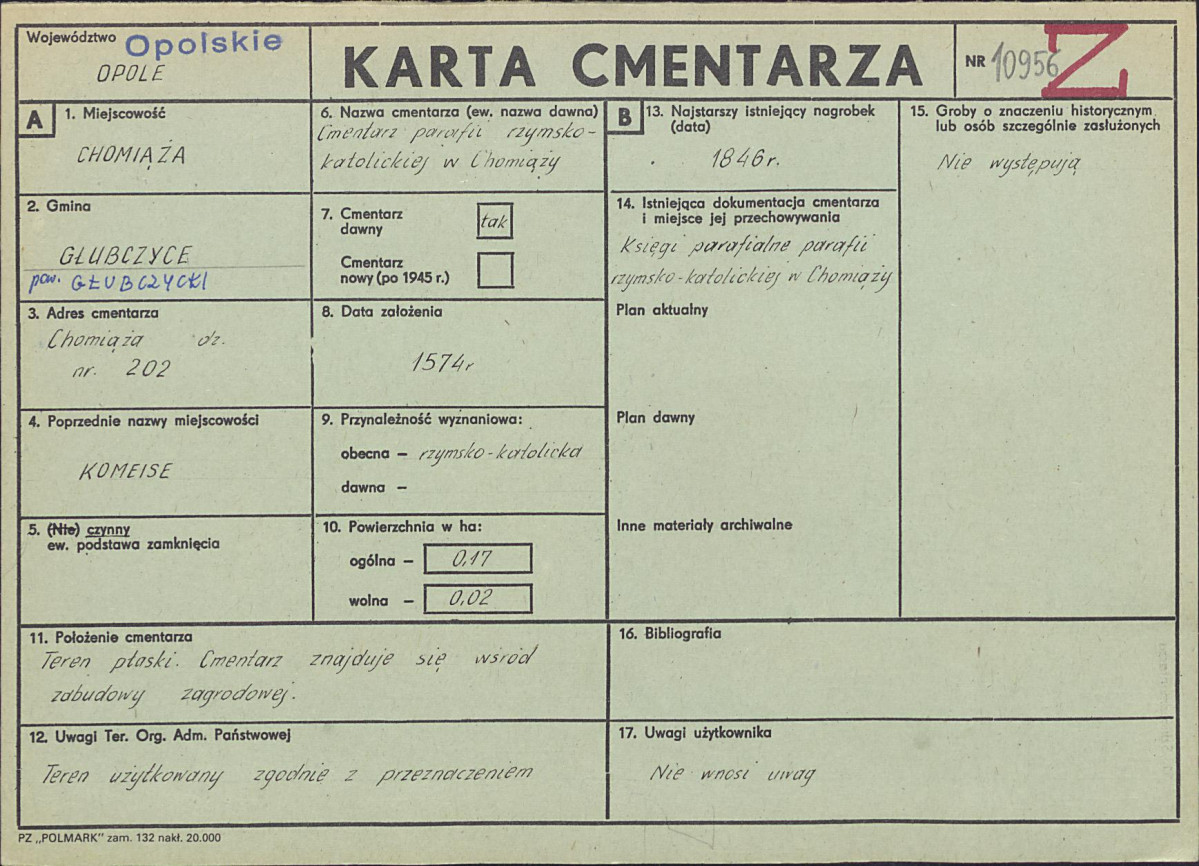 Województwo Opolskie
OPOLE
KARTA CMENTARZA
NR 10956 Z
A
1. Miejscowość
CHOMIĄŻA
2. Gmina
GŁUBCZYCE
pow. GŁUBCZYCKI
3. Adres cmentarza
Chomiąża dz.
nr. 202
4. Poprzednie nazwy miejscowości
KOMEISE
5. (Nie) czynny
ew. podstawa zamknięcia
6. Nazwa cmentarza (ew. nazwa dawna)
Cmentarz parafii rzymsko-
katolickiej w Chomiąży
7. Cmentarz
dawny
tak
Cmentarz
nowy (po 1945 r.)
8. Data założenia
1574r
9. Przynależność wyznaniowa:
obecna – rzymsko-katolicka
dawna –
10. Powierzchnia w ha:
ogólna – 0,17
wolna – 0,02
11. Położenie cmentarza
Teren płaski. Cmentarz znajduje się wśród
zabudowy zagrodowej.
12. Uwagi Ter. Org. Adm. Państwowej
Teren użytkowany zgodnie z przeznaczeniem
B
13. Najstarszy istniejący nagrobek
(data)
1846r.
14. Istniejąca dokumentacja cmentarza
i miejsce jej przechowywania
Księgi parafialne parafii
rzymsko-katolickiej w Chomiąży
Plan aktualny
Plan dawny
Inne materiały archiwalne
15. Groby o znaczeniu historycznym
lub osób szczególnie zasłużonych
Nie występują
16. Bibliografia
17. Uwagi użytkownika
Nie wnosi uwag
PZ „POLMARK" zam. 132 nakł. 20.000